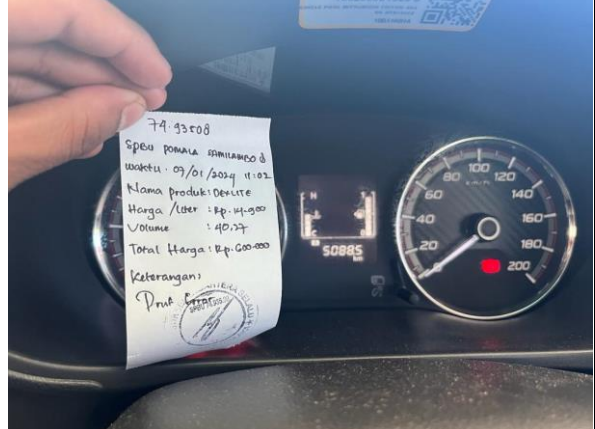 74.93508
SPBU POMALA
waktu : 09/01/2024 11:02
Nama produk : DEXLITE
Harga /Liter : Rp. 14.900
Volume : 40.27
Total Harga : Rp. 600.000
Keterangan :
Error
50885
km
H
20
40
60
80
100
120
140
160
180
200
km/h